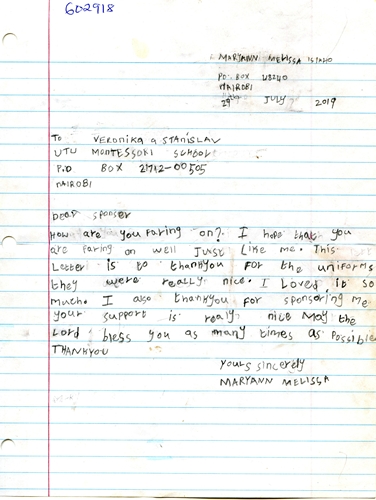 602918
MARYANN MELISSA
P.O. BOX
NAIROBI
29th JULY 2019
TO VERONIKA a STANISLAV
UTU MONTESSORI SCHOOL
P.O BOX 21712-00505
NAIROBI
Dear sponser
How are you faring on? I hope that you
are faring on well Just like me. This
Letter is to thankyou for the uniforms
they were really nice. I Loved it so
much. I also thankyou for sponsoring me
your support is realy nice May the
Lord bless you as many times as possible
THANKYOU
Yours sincerely
MARYANN MELISSA